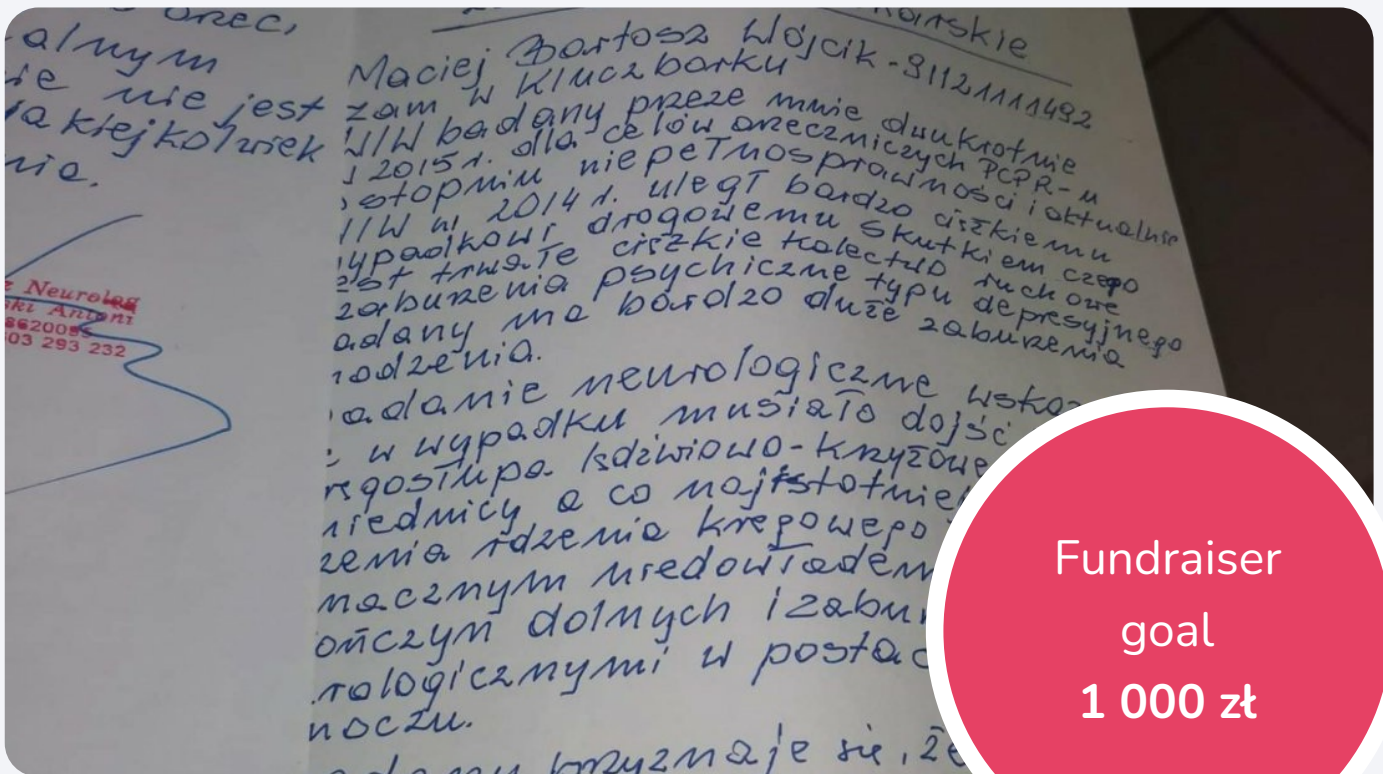 orzec,
alnym
ie nie jest
jakiejkolwiek
nia.
Neurolog
ski Antoni
03 293 232
Maciej Bartosz Wójcik - 91121111492
zam w Kluczborku
W/W badany przeze mnie dwukrotnie
2015 r. dla celów orzeczniczych PCPR-u
stopniu niepełnosprawności i aktualnie
W/W w 2014 r. uległ bardzo ciężkiemu
ypadkowi drogowemu skutkiem czego
est trwałe ciężkie kalectwo ruchowe
zaburzenia psychiczne typu depresyjnego
adany ma bardzo duże zaburzenia
hodzenia.
adanie neurologiczne wska
w wypadku musiało dojść
ręgosłupa lędźwiowo-krzyżowe
miednicy a co najistotnie
zenia rdzenia kręgowego
nacznym niedowładem
ończyn dolnych i zabu
rologicznymi w postac
moczu.
adany przyznaje się, że
Fundraiser
goal
1 000 zł